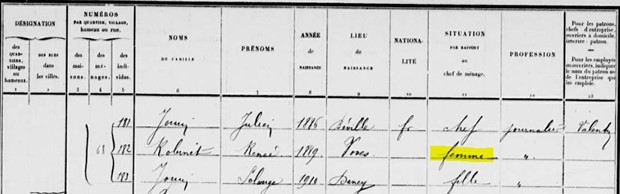 DÉSIGNATION
NUMÉROS
PAR QUARTIER, VILLAGE,
hameau ou rue.
des
QUARTIERS,
villages
ou
hameaux.
des RUES
dans
les villes.
des
maisons.
des
ménages.
des
individus.
NOMS
DE FAMILLE
PRÉNOMS
ANNÉE
de
NAISSANCE
LIEU
de
NAISSANCE
NATIONALITÉ
SITUATION
PAR RAPPORT
au
chef de ménage.
PROFESSION
Pour les patrons,
chefs d'entreprise,
ouvriers à domicile,
inscrire : patron.
Pour les employés
ou ouvriers, indiquer
le nom du patron ou
de l'entreprise qui
les emploie.
1 2 3 4 5 6 7 8 9 10 11 12 13
181 Julien 1886 fr chef journalier
182 Robinet Renée 1889 Voves femme "
183 Solange 1910 fille "